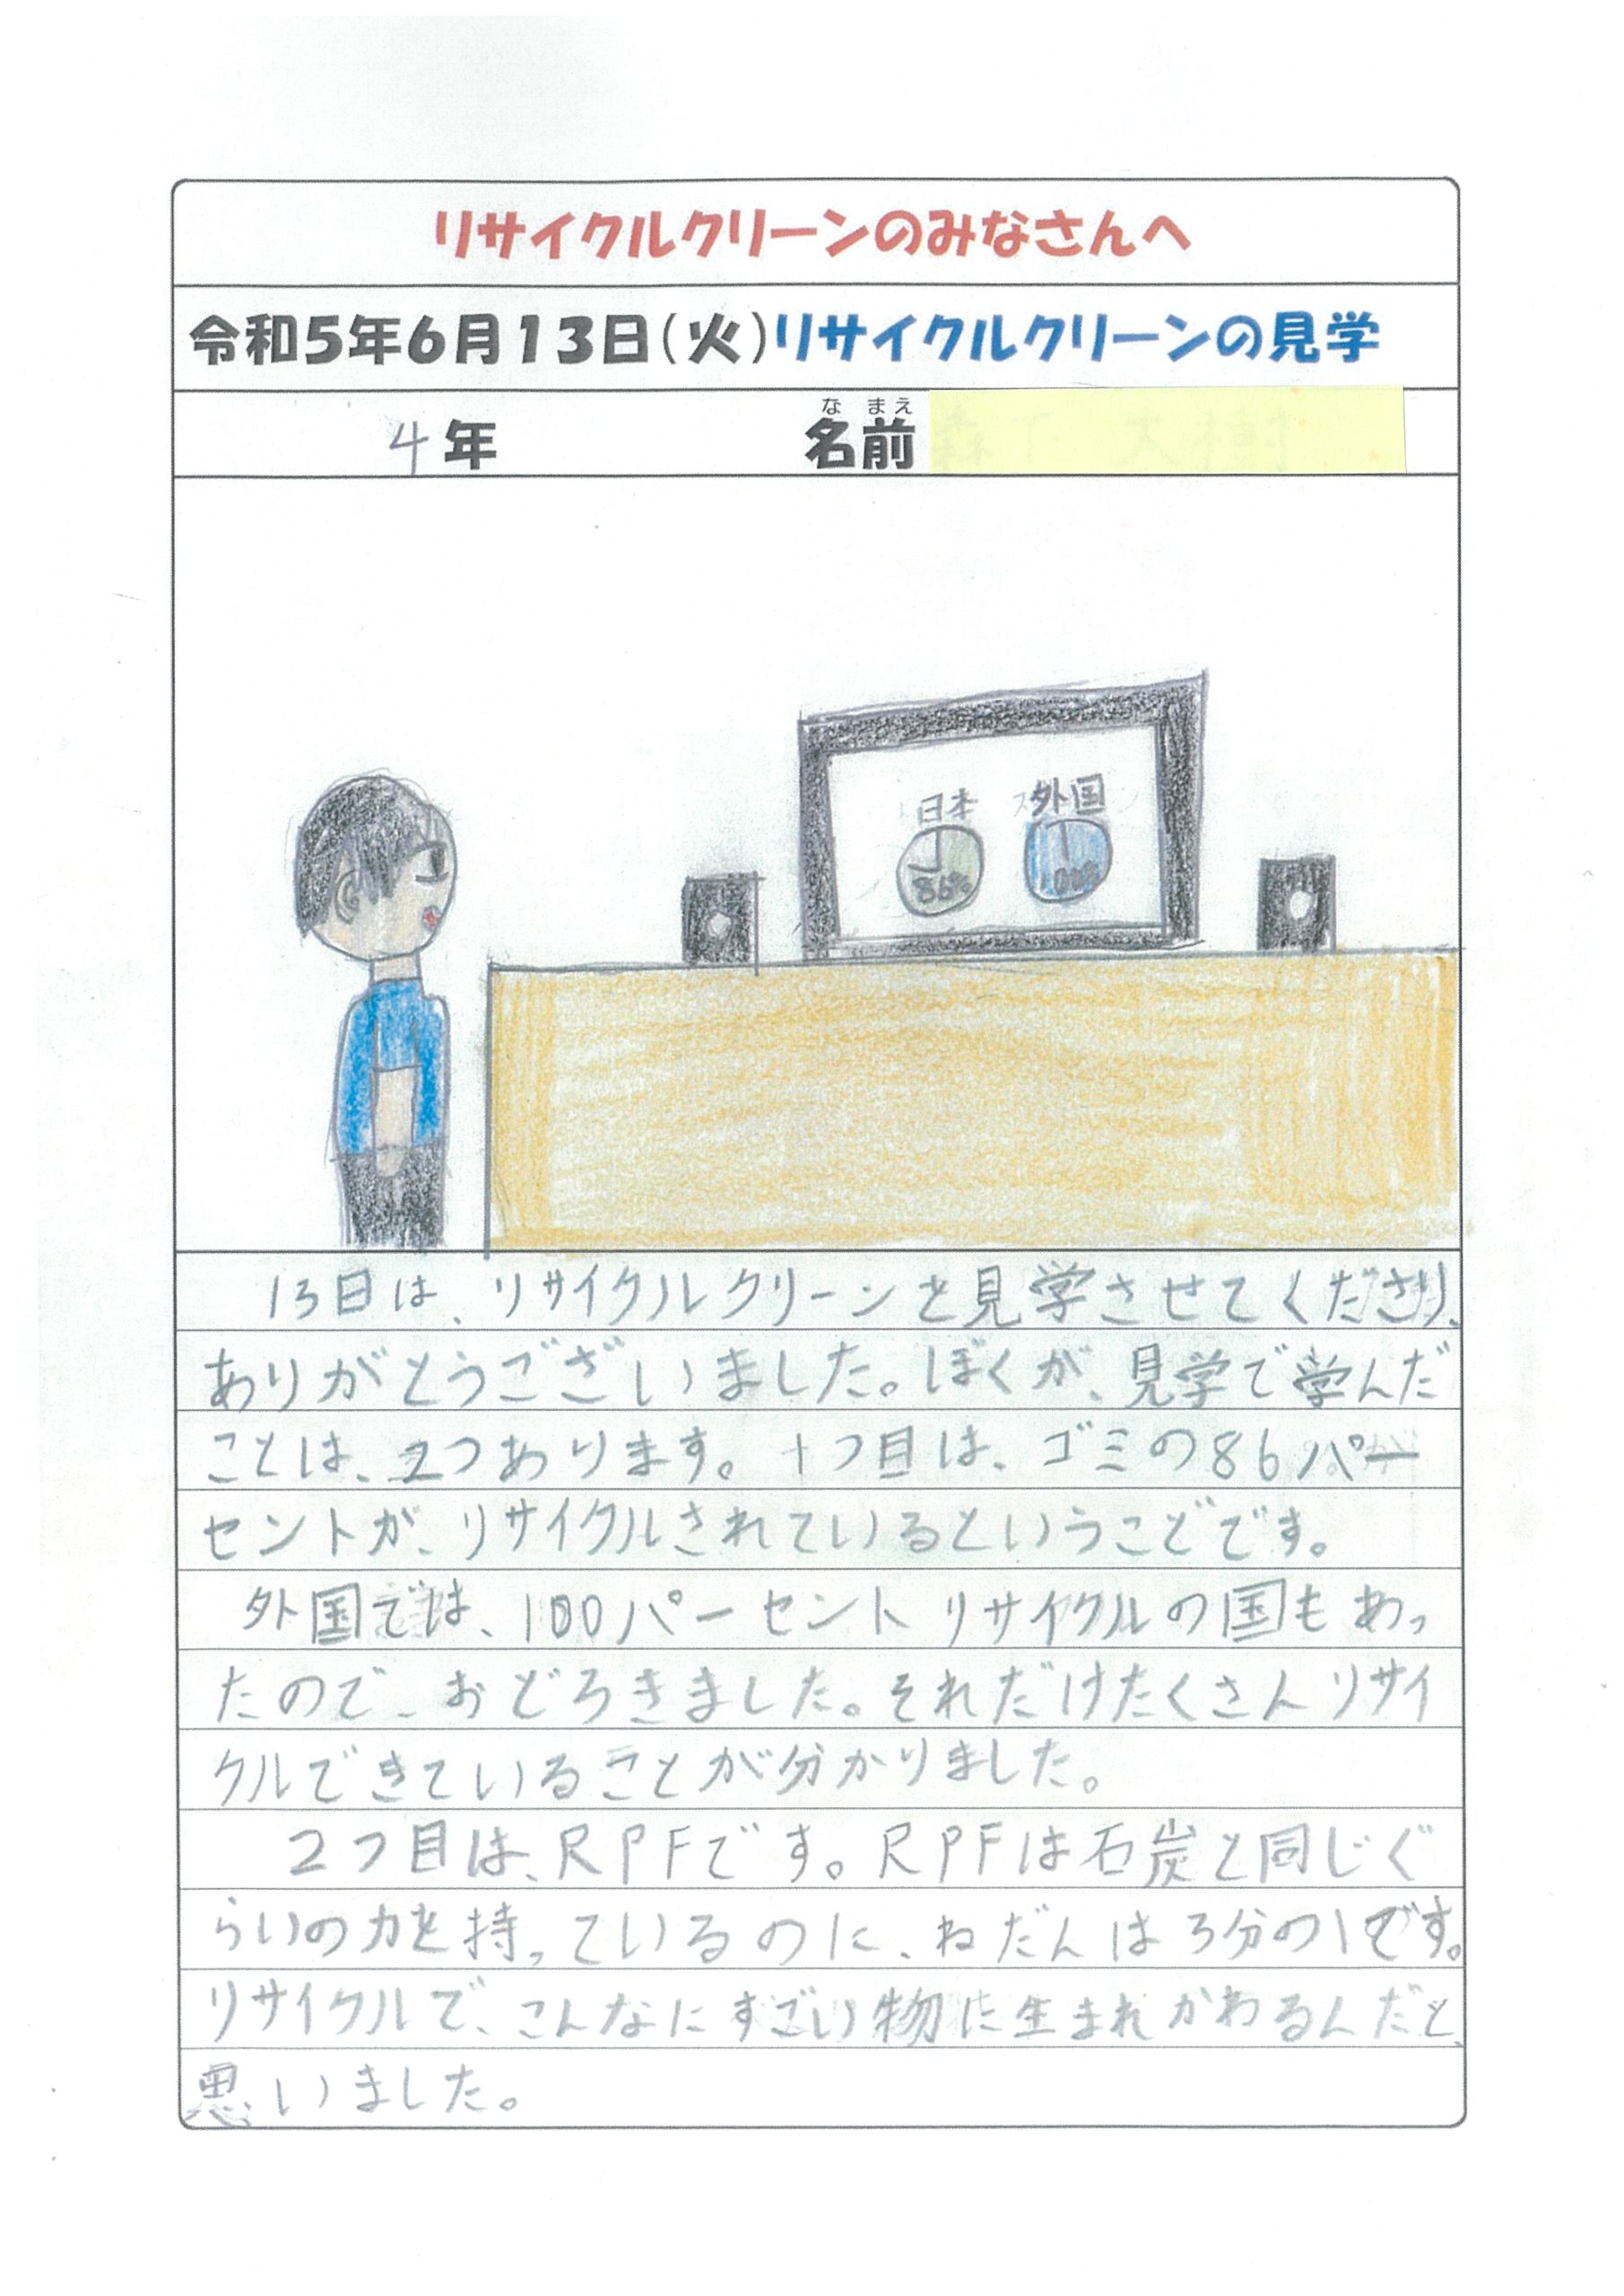 リサイクルクリーンのみなさんへ
令和5年6月13日(火)リサイクルクリーンの見学
4年 名前
な まえ
日本 外国
86%
13日は、リサイクルクリーンを見学させてくださり、
ありがとうございました。ぼくが、見学で学んだ
ことは、2つあります。1つ目は、ゴミの86パー
セントが、リサイクルされているということです。
外国では、100パーセントリサイクルの国もあっ
たので、おどろきました。それだけたくさんリサイ
クルできていることが分かりました。
2つ目は、RPFです。RPFは石炭と同じぐ
らいの力を持っているのに、ねだんは3分の1です。
リサイクルで、こんなにすごい物に生まれかわるんだと、
思いました。